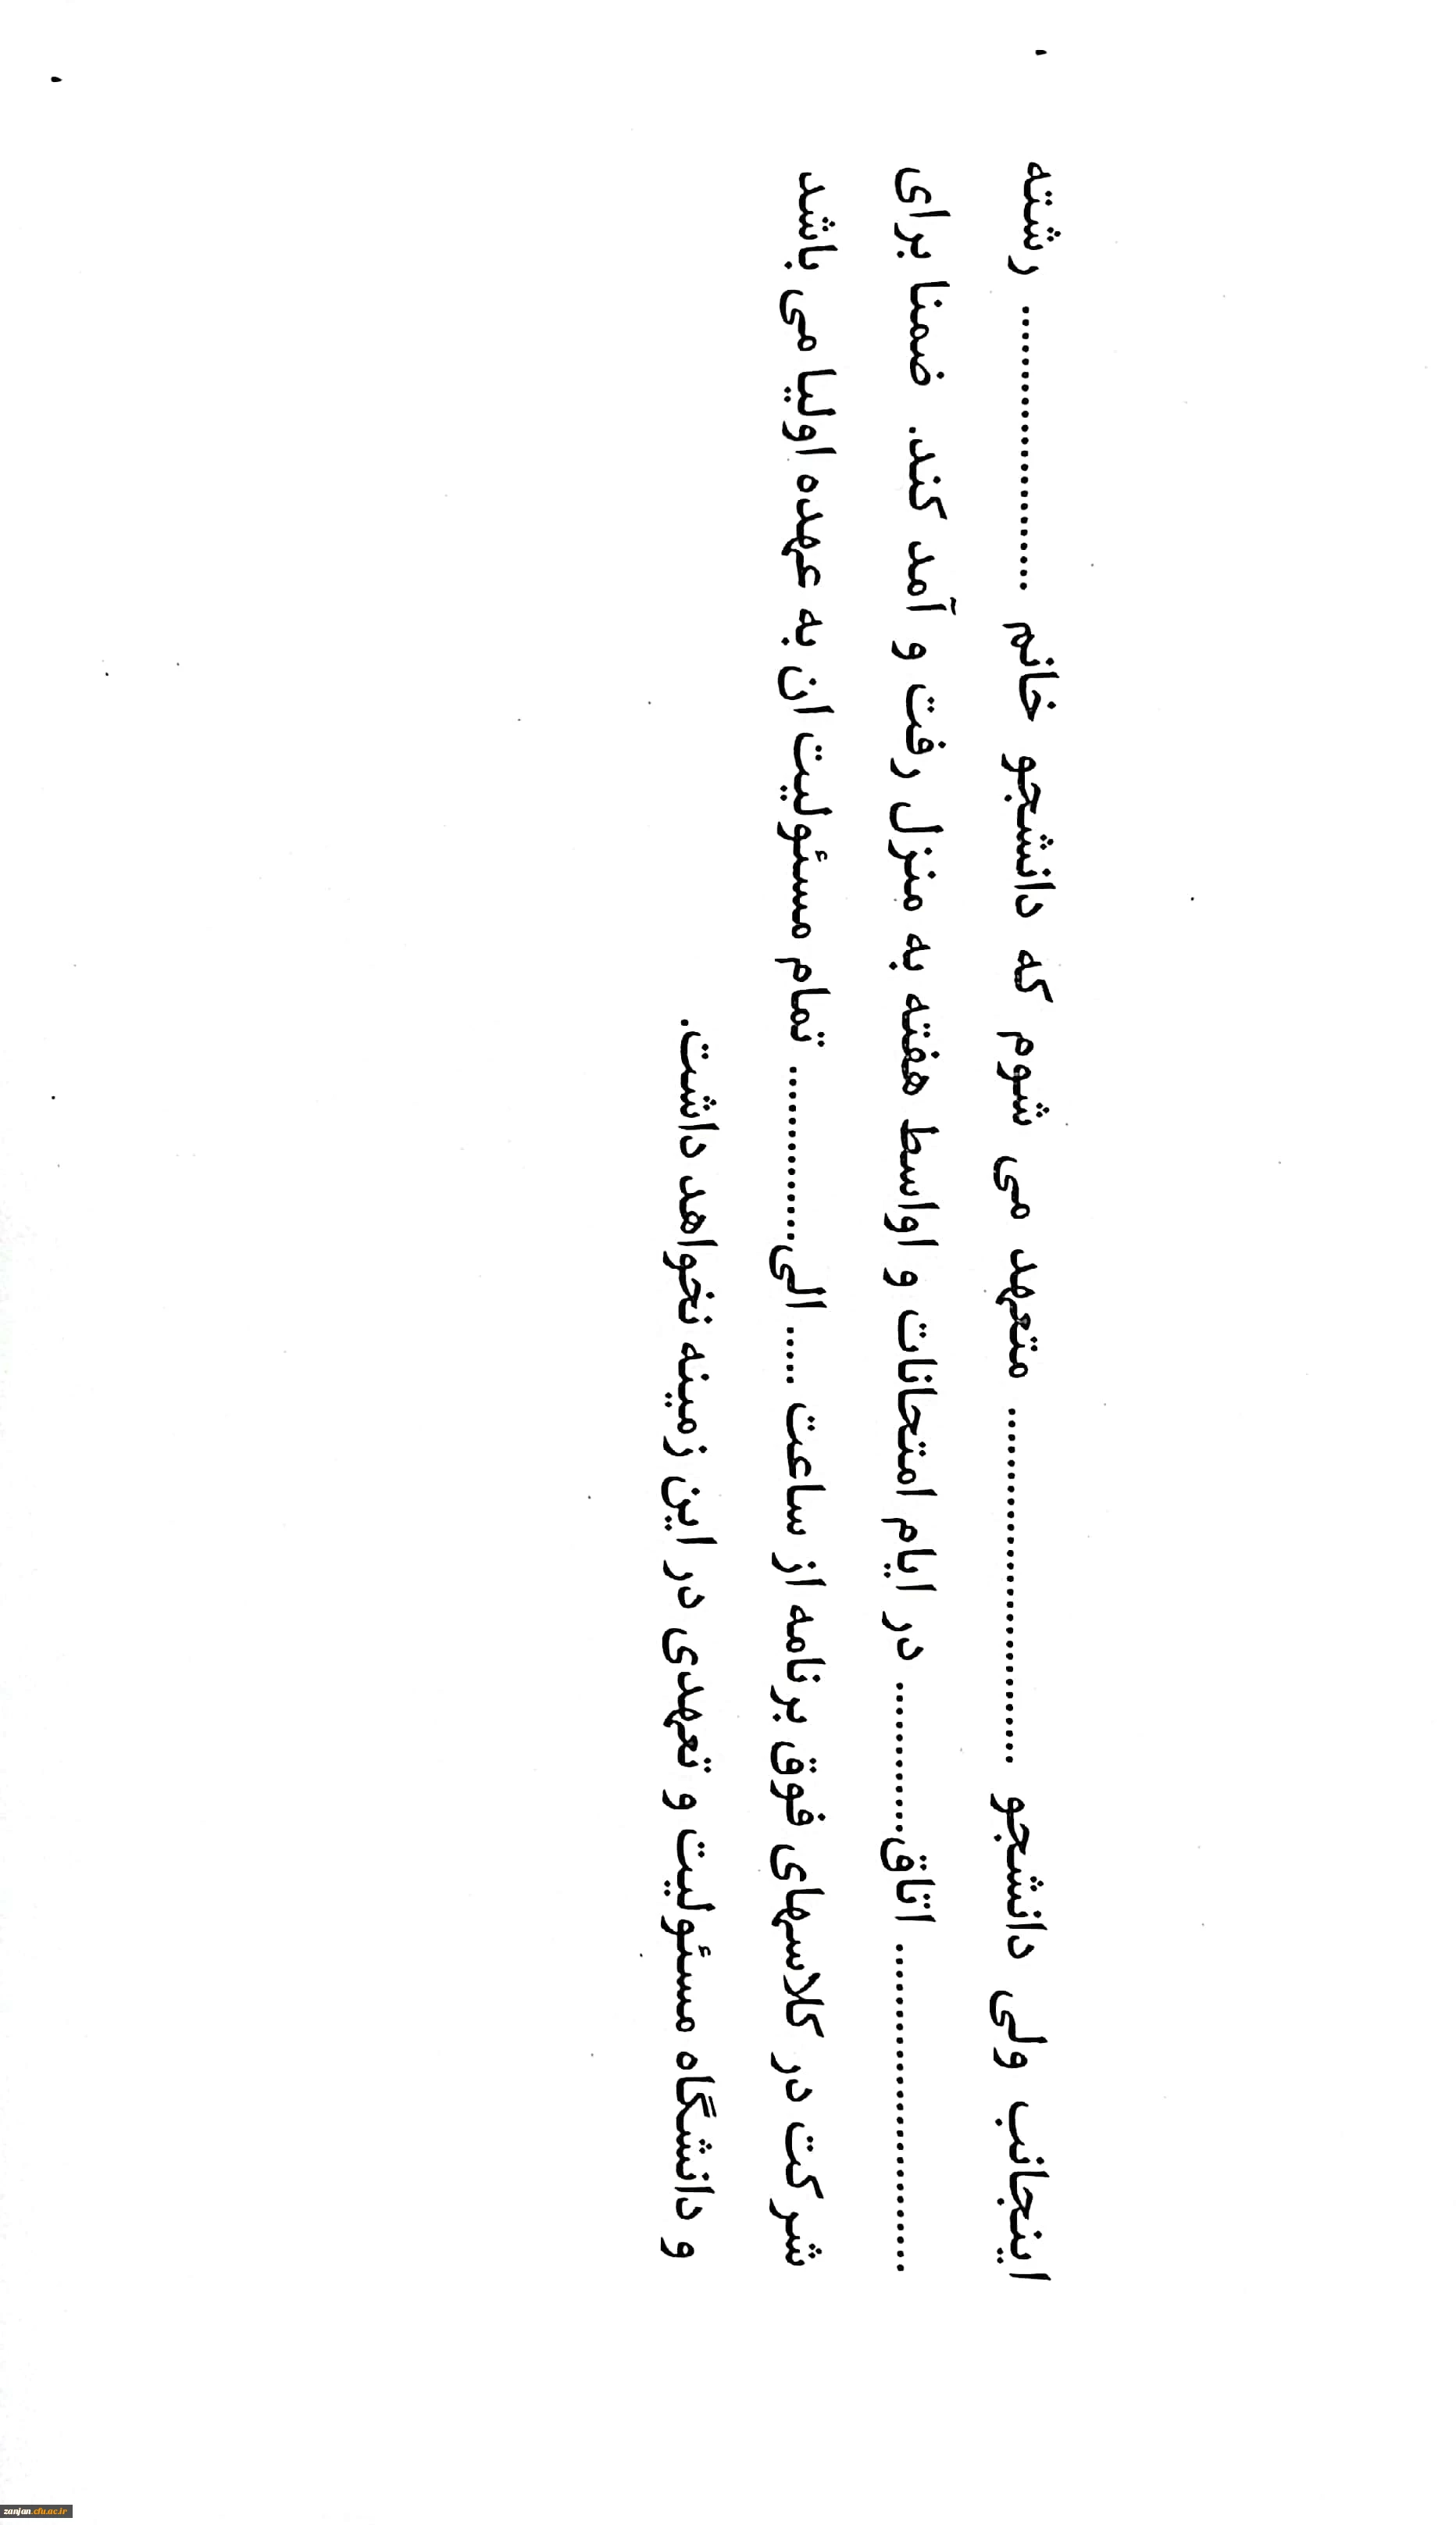 اینجانب ولی دانشجو .............................. متعهد می شوم که دانشجو خانم ...................... رشته
.......................... اتاق............ در ایام امتحانات و اواسط هفته به منزل رفت و آمد کند. ضمنا برای
شرکت در کلاسهای فوق برنامه از ساعت ..... الی.............. تمام مسئولیت ان به عهده اولیا می باشد
و دانشگاه مسئولیت و تعهدی در این زمینه نخواهد داشت.
zanjan.cfu.ac.ir